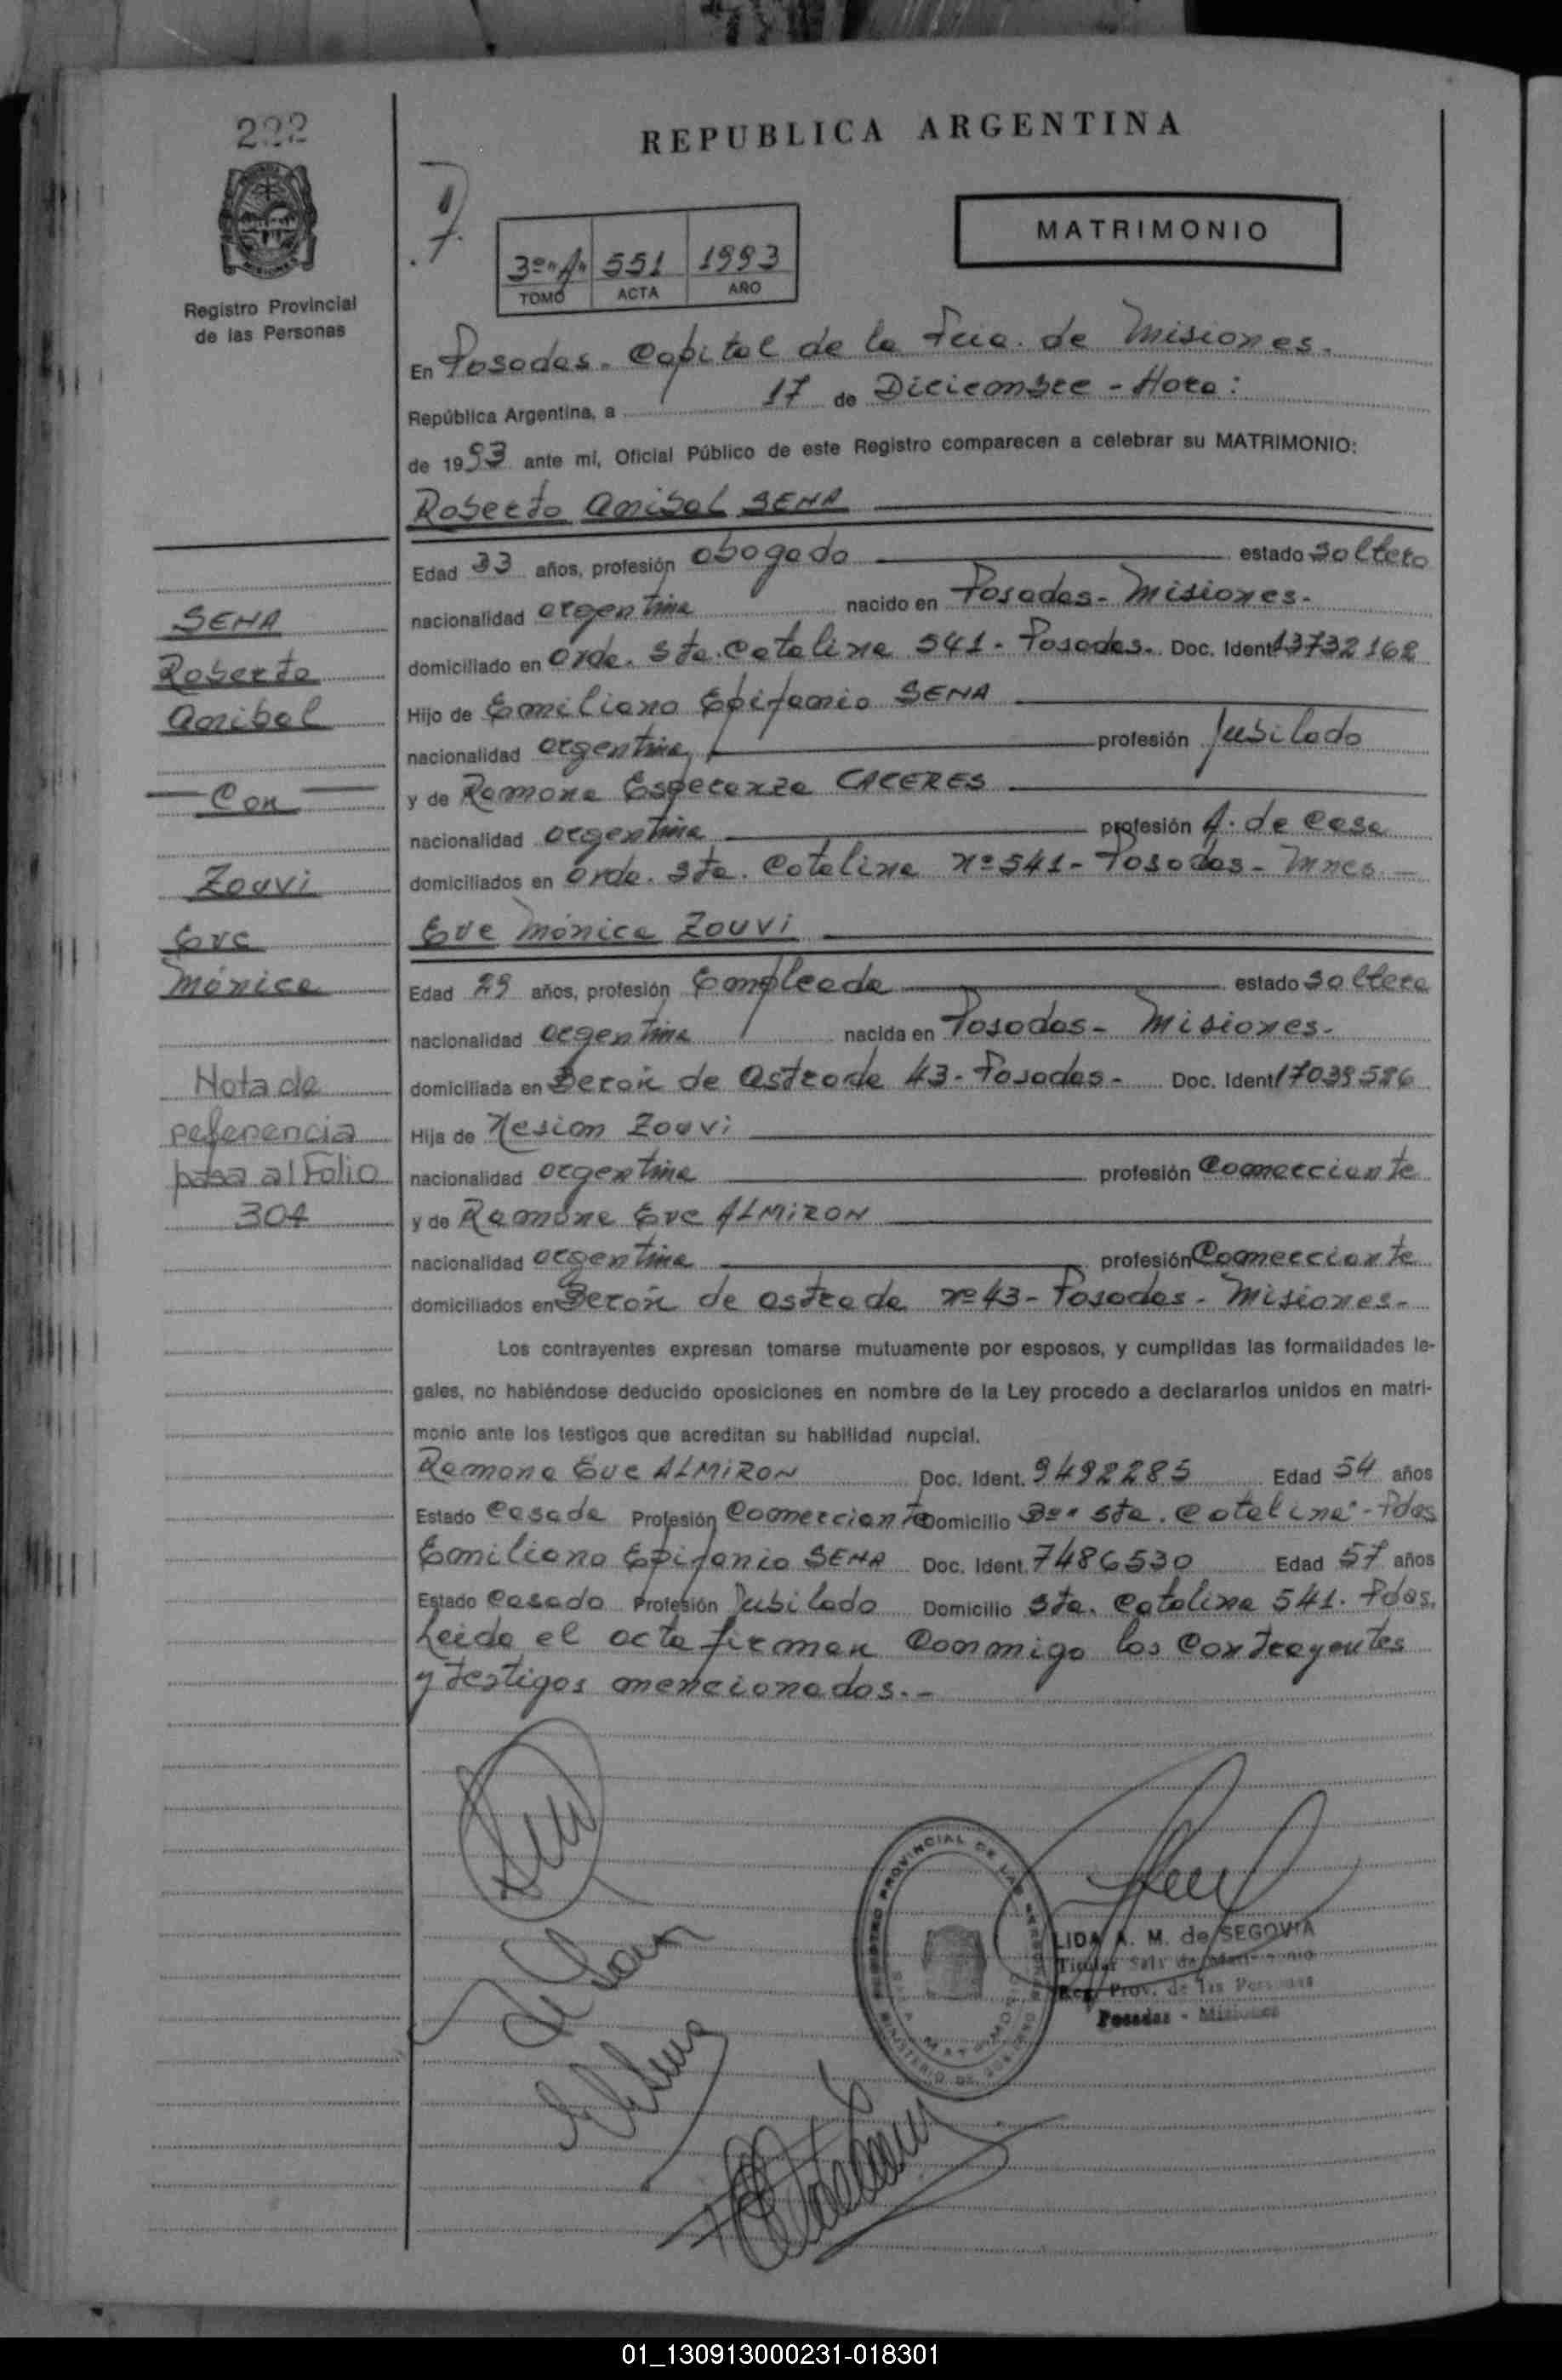 222
REPUBLICA ARGENTINA
MATRIMONIO
3º"A" 551 1993
TOMO ACTA AÑO
Registro Provincial
de las Personas
En Posadas - Capital de la Pcia. de Misiones.
República Argentina, a 17 de Diciembre - Hora:
de 1993 ante mí, Oficial Público de este Registro comparecen a celebrar su MATRIMONIO:
Roberto Anibal SENA
Edad 33 años, profesión abogado estado soltero
nacionalidad argentina nacido en Posadas - Misiones -
domiciliado en Avda. Sta. Catalina 541 - Posadas - Doc. Ident. 13732162
Hijo de Emiliano Epifanio SENA
nacionalidad argentina profesión Jubilado
y de Ramona Esperanza CACERES
nacionalidad argentina profesión A. de Casa
domiciliados en Avda. Sta. Catalina nº 541 - Posadas - Mnes. -
Eve Mónica Zouvi
Edad 29 años, profesión Empleada estado soltera
nacionalidad argentina nacida en Posadas - Misiones -
domiciliada en Berón de Astrada 43 - Posadas - Doc. Ident. 17039586
Hija de Nesion Zouvi
nacionalidad argentina profesión Comerciante
y de Ramona Eve ALMIRON
nacionalidad argentina profesión Comerciante
domiciliados en Berón de Astrada nº 43 - Posadas - Misiones -
Los contrayentes expresan tomarse mutuamente por esposos, y cumplidas las formalidades le-
gales, no habiéndose deducido oposiciones en nombre de la Ley procedo a declararlos unidos en matri-
monio ante los testigos que acreditan su habilidad nupcial.
Ramona Eve ALMIRON Doc. Ident. 9492285 Edad 54 años
Estado Casada Profesión Comerciante Domicilio Bº "Sta. Catalina" - Pdas
Emiliano Epifanio SENA Doc. Ident. 7486530 Edad 57 años
Estado Casado Profesión Jubilado Domicilio Sta. Catalina 541. Pdas.
Leida el acta firman conmigo los contrayentes
y testigos mencionados. -
SENA
Roberto
Anibal
Con
Zouvi
Eve
Mónica
Nota de
referencia
pasa al Folio
304
REGISTRO PROVINCIAL DE LAS PERSONAS
SALA MATRIMONIO
MINISTERIO DE GOBIERNO
LIDA A. M. de SEGOVIA
Titular Sala de Matrimonio
Reg. Prov. de las Personas
Posadas - Misiones
01_130913000231-018301